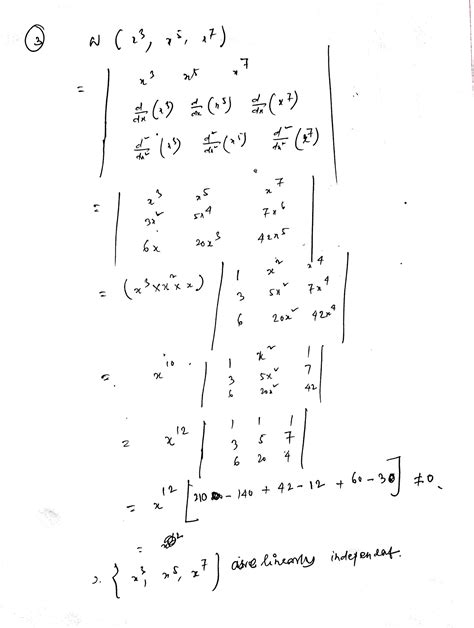 ③ W (x³, x⁵, x⁷)
= | x³ x⁵ x⁷ |
| d/dx (x³) d/dx (x⁵) d/dx (x⁷) |
| d²/dx² (x³) d²/dx² (x⁵) d²/dx² (x⁷) |
= | x³ x⁵ x⁷ |
| 3x² 5x⁴ 7x⁶ |
| 6x 20x³ 42x⁵ |
= (x³ × x² × x) | 1 x² x⁴ |
| 3 5x² 7x⁴ |
| 6 20x² 42x⁴ |
= x¹⁰ | 1 x² 1 |
| 3 5x² 7 |
| 6 20x² 42 |
= x¹² | 1 1 1 |
| 3 5 7 |
| 6 20 4 |
= x¹² [210 - 140 + 42 - 12 + 60 - 30] ≠ 0.
=
∴ {x³, x⁵, x⁷} are linearly independent.